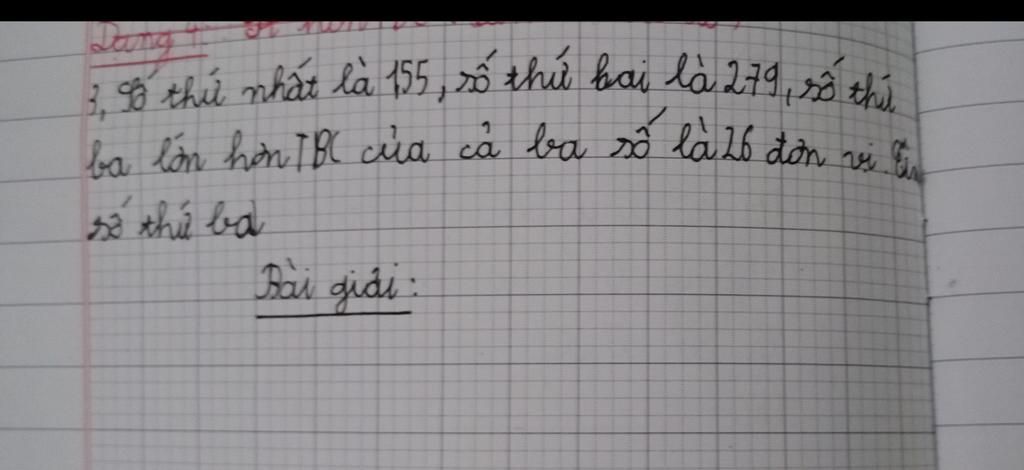 Dạng 4:
3, Số thứ nhất là 155, số thứ hai là 279, số thứ
ba lớn hơn TBC của cả ba số là 26 đơn vị. Tìm
số thứ ba
Bài giải: